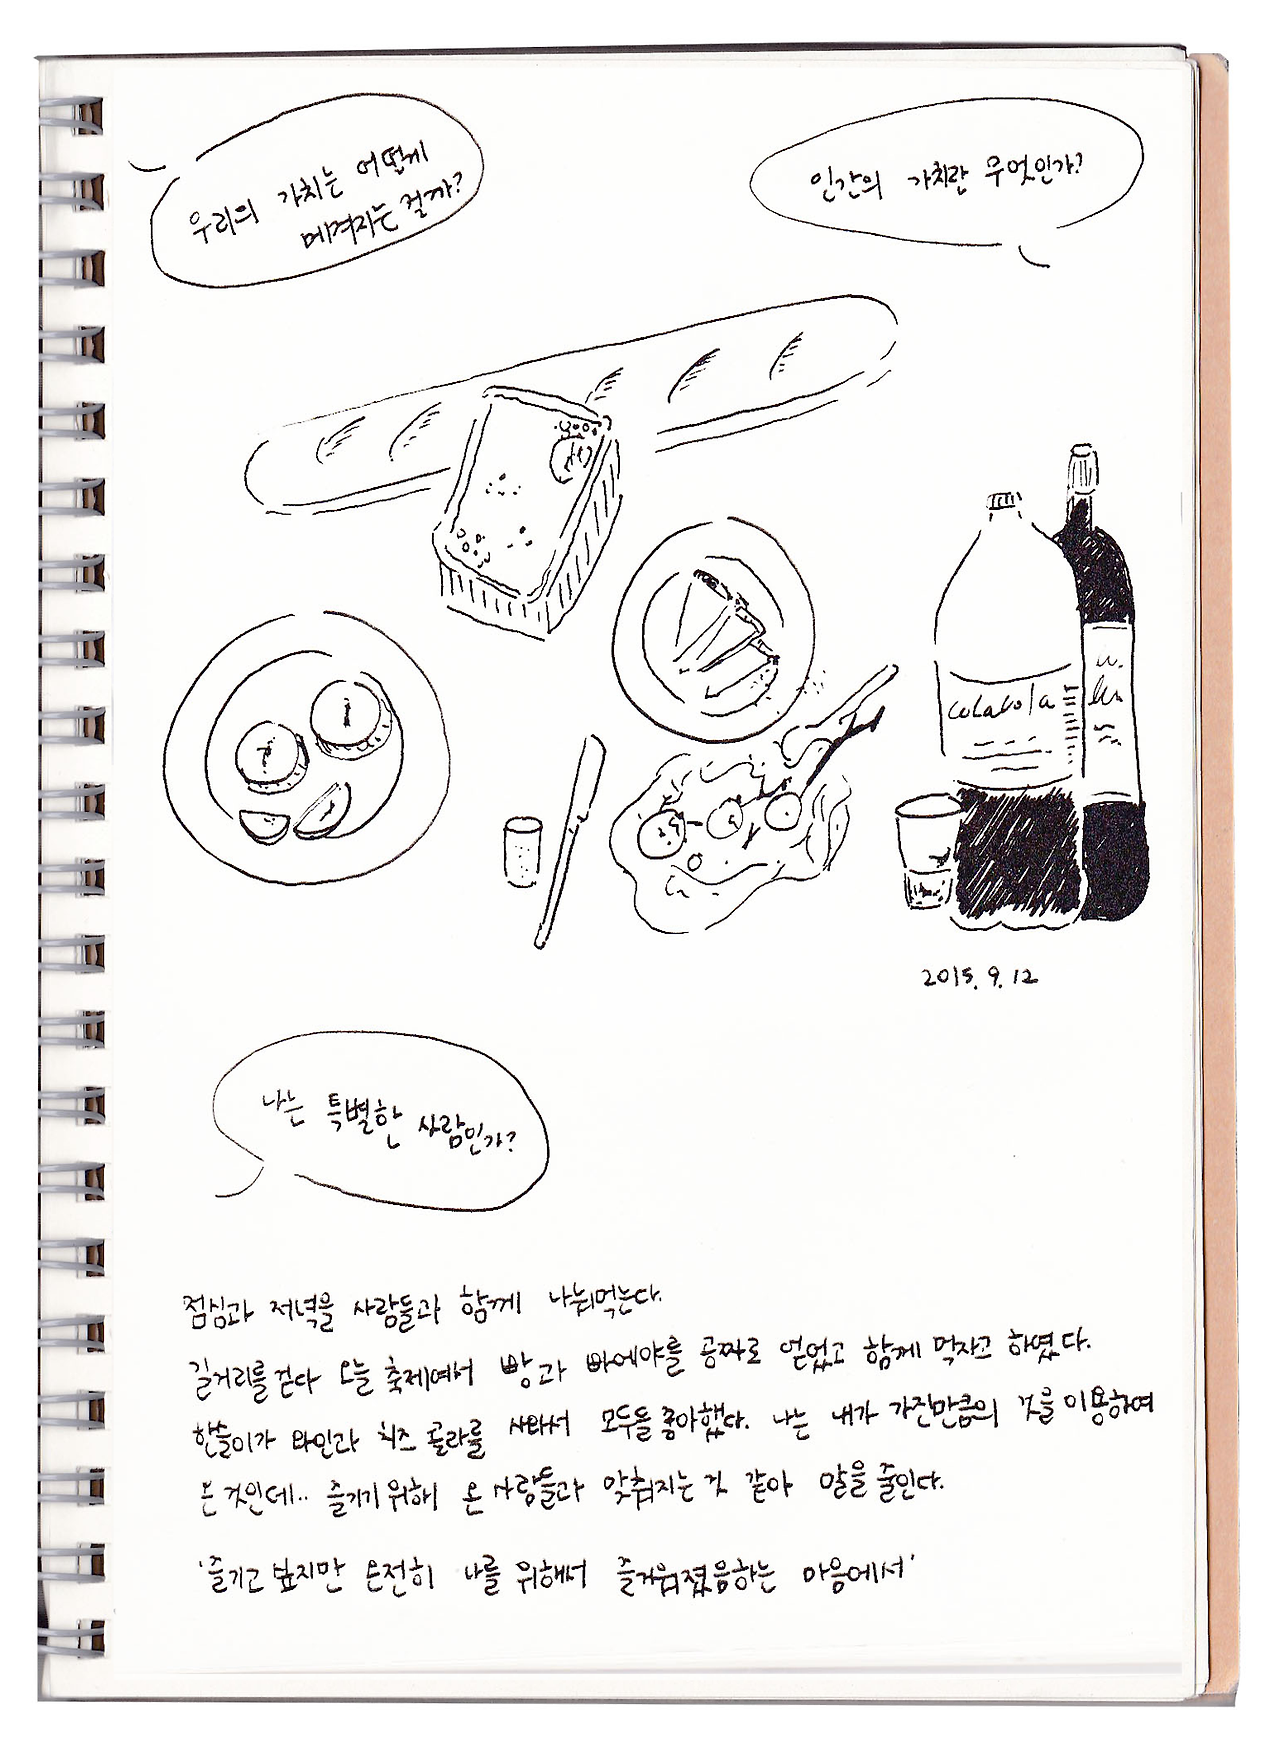 우리의 가치는 어떻게
메겨지는 걸까?
인간의 가치란 무엇인가?
colacola
2015. 9. 12
나는 특별한 사람인가?
점심과 저녁을 사람들과 함께 나눠먹는다.
길거리를 걷다 오늘 축제에서 빵과 빠에야를 공짜로 얻었고 함께 먹자고 하였다.
한솔이가 와인과 치즈 콜라를 사와서 모두들 좋아했다. 나는 내가 가진만큼의 것을 이용하여
든 것인데.. 즐기기 위해 온 사람들과 맞춰지는 것 같아 말을 줄인다.
'즐기고 싶지만 온전히 나를 위해서 즐거워졌음하는 마음에서'